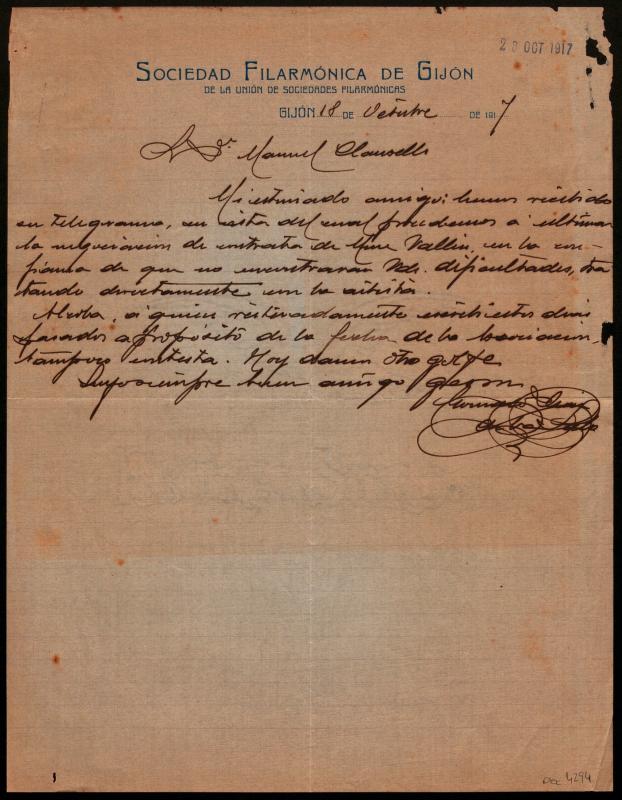 20 OCT 1917
SOCIEDAD FILARMÓNICA DE GIJÓN
DE LA UNIÓN DE SOCIEDADES FILARMÓNICAS
GIJÓN 18 DE Octubre DE 1917
Sr. Dn. Manuel Clausells
Mi estimado amigo: hemos recibido
su telegrama, en vista del cual procedemos a ultimar
la negociacion de contrata de Mme Vallin, en la con-
fianza de que no encontraran Vds. dificultades, tra
tando directamente con la artista.
Alcoba, a quien reiteradamente escribi estos dias
pasados a propósito de la fecha de la Asociacion,
tampoco contesta. Hoy damos otro golpe
Suyo siempre buen amigo